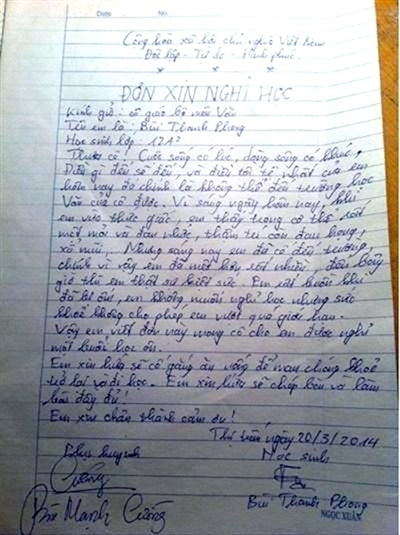 Date No.
Cộng hòa xã hội chủ nghĩa Việt Nam
Độc lập - Tự do - Hạnh phúc
ĐƠN XIN NGHỈ HỌC
Kính gửi: cô giáo bộ môn Văn
Tên em là: Bùi Thanh Phong
Học sinh lớp: 12A2
Thưa cô! Cuộc sống có lúc, dòng sông có khúc,
Điều gì đến sẽ đến, và điều tồi tệ nhất của em
hôm nay đó chính là không thể đến trường học
Văn của cô được. Vì sáng ngày hôm nay, khi
em vừa thức giấc, em thấy trong cơ thể rất
mệt mỏi và đau nhức, thậm trí còn đau họng,
xổ mũi. Nhưng sáng nay em đã cố đến trường,
chính vì vậy em đã mệt hơn rất nhiều, đến bây
giờ thì em thật sự kiệt sức. Em rất buồn khi
đã bị ốm, em không muốn nghỉ học nhưng sức
khoẻ không cho phép em vượt quá giới hạn.
Vậy em viết đơn này mong cô cho em được nghỉ
một buổi học ôn.
Em xin hứa sẽ cố gắng ăn uống để mau chóng khoẻ
trở lại và đi học. Em xin hứa sẽ chép bài và làm
bài đầy đủ!
Em xin chân thành cảm ơn!
ngày 20/3/2014
Phụ huynh Học sinh
Bùi Mạnh Cường Bùi Thanh Phong
NGỌC XUÂN